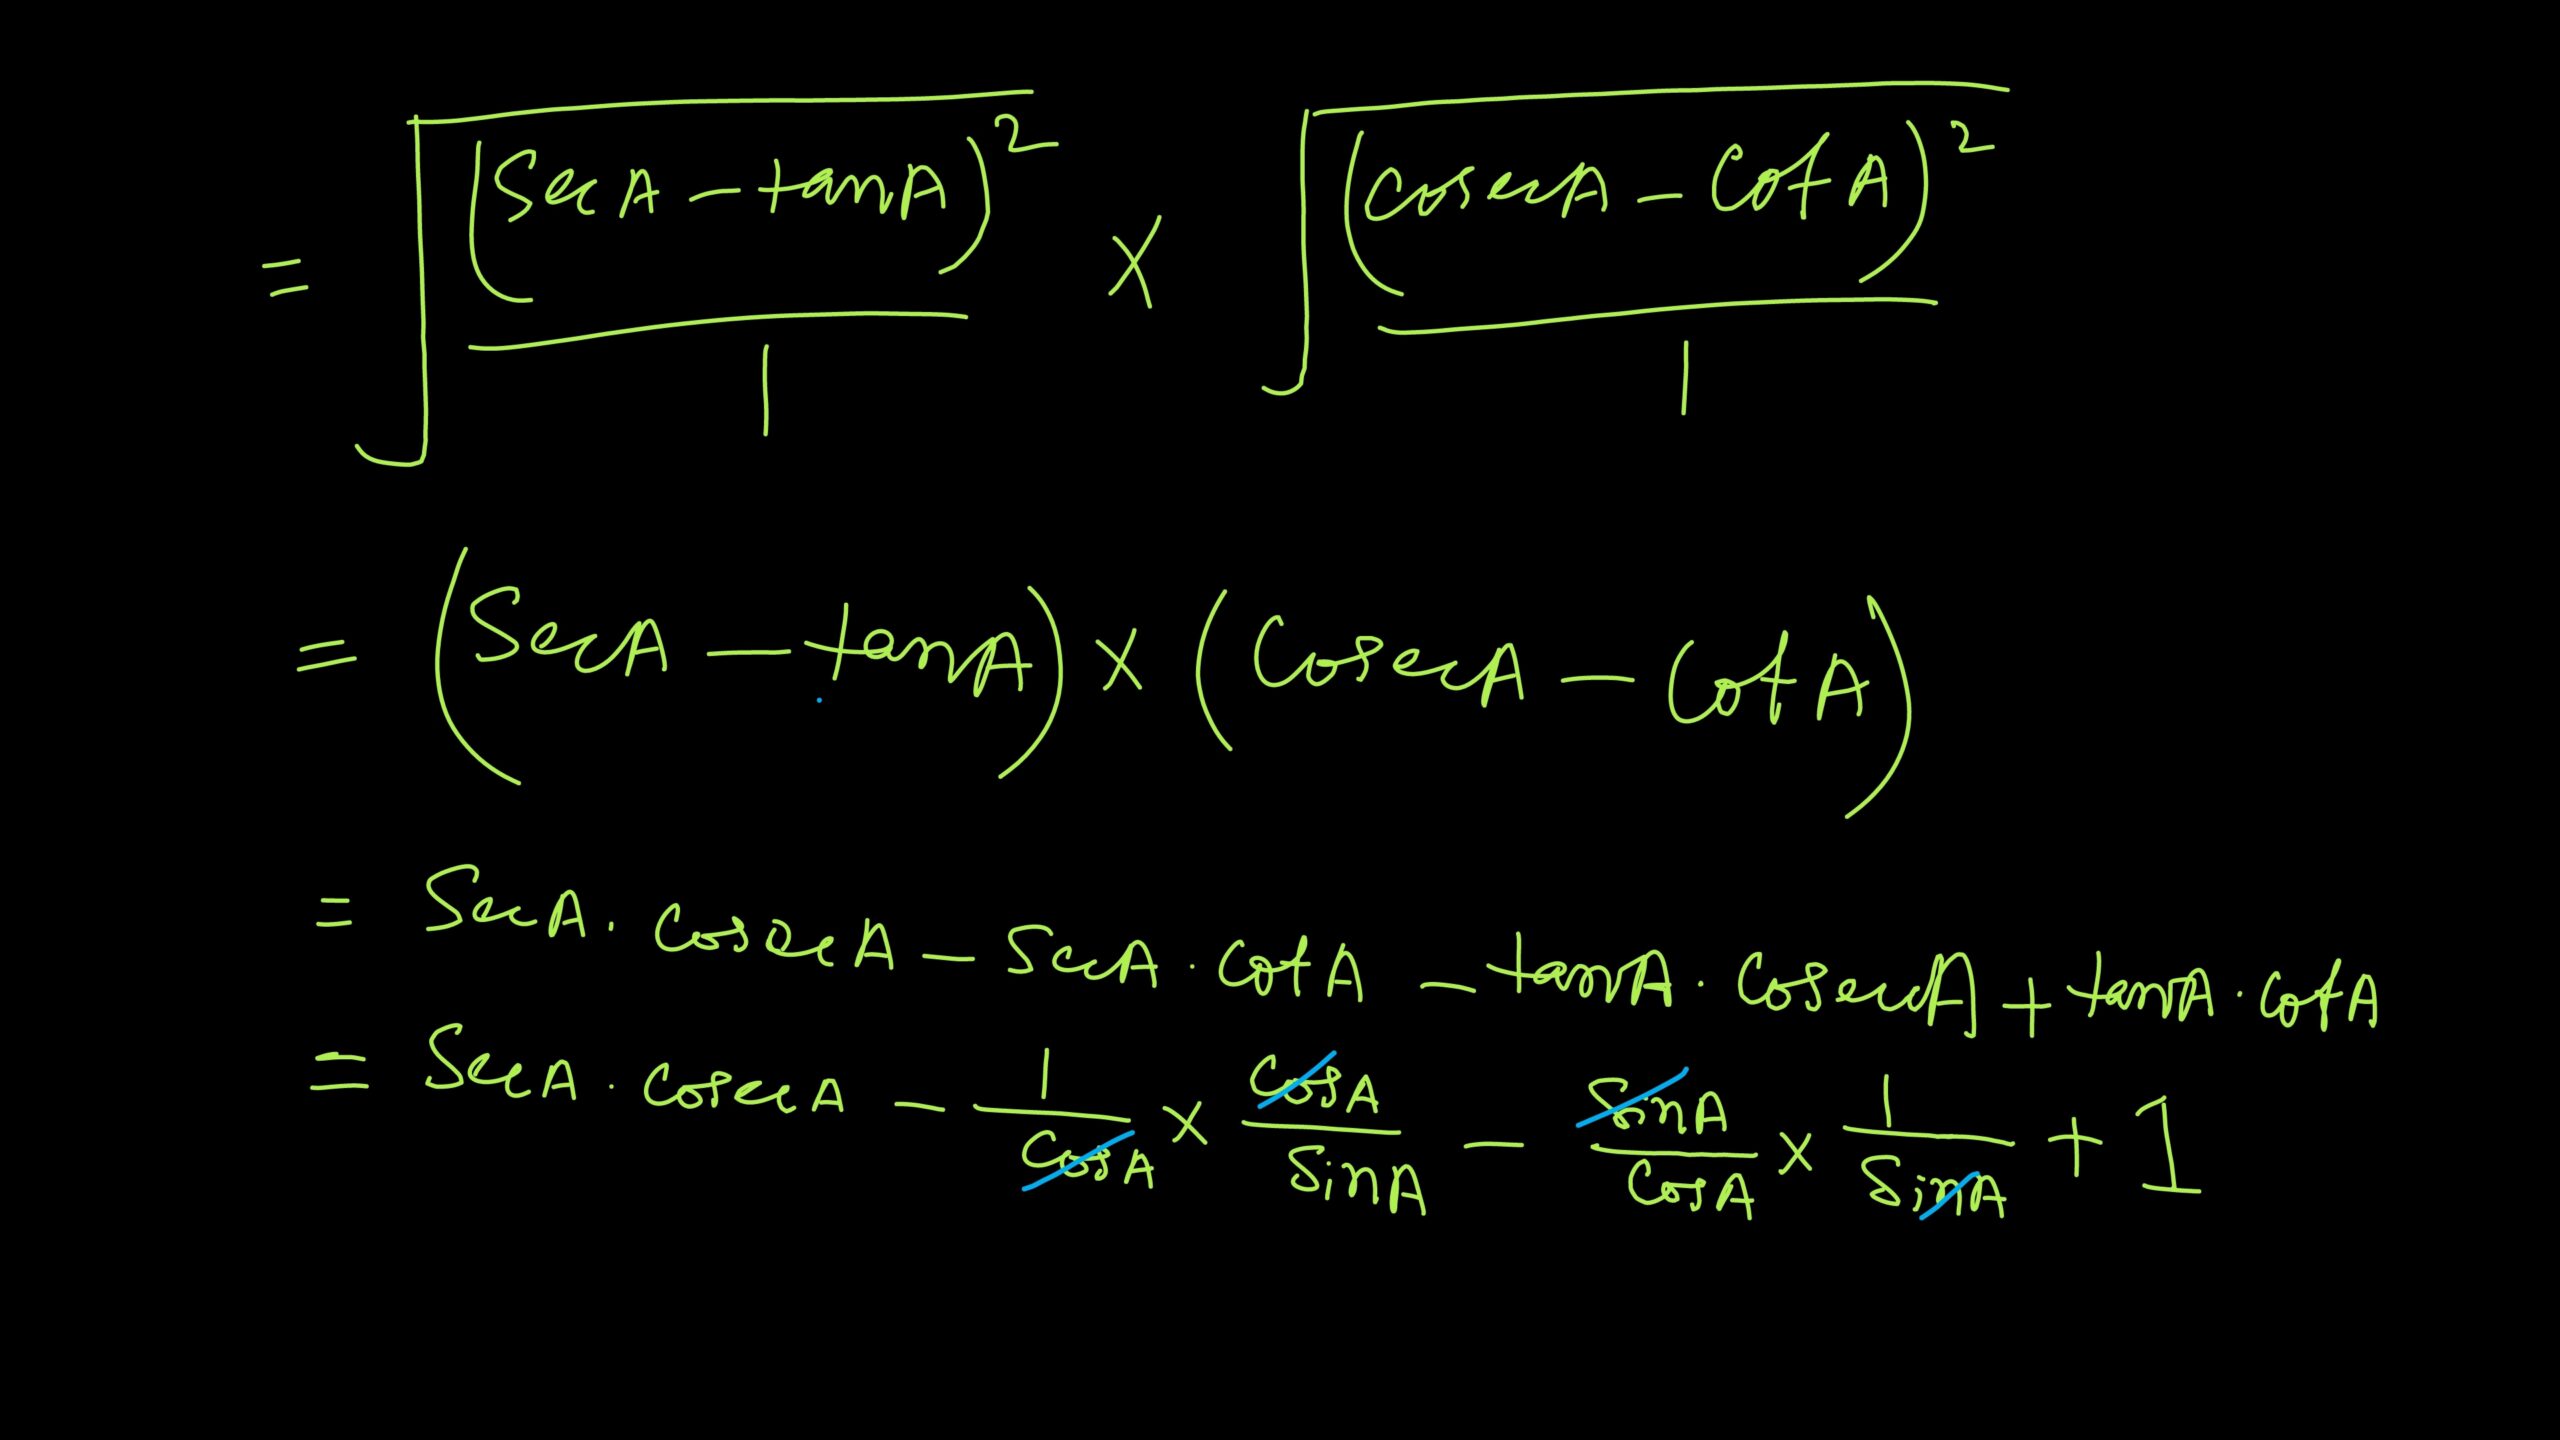 = √((SecA - tanA)² / 1) × √((cosecA - CotA)² / 1)
= (SecA - tanA) × (CosecA - CotA)
= SecA . CosecA - SecA . CotA - tanA . CosecA + tanA . CotA
= SecA . CosecA - 1/CosA × CosA/SinA - SinA/CosA × 1/SinA + 1